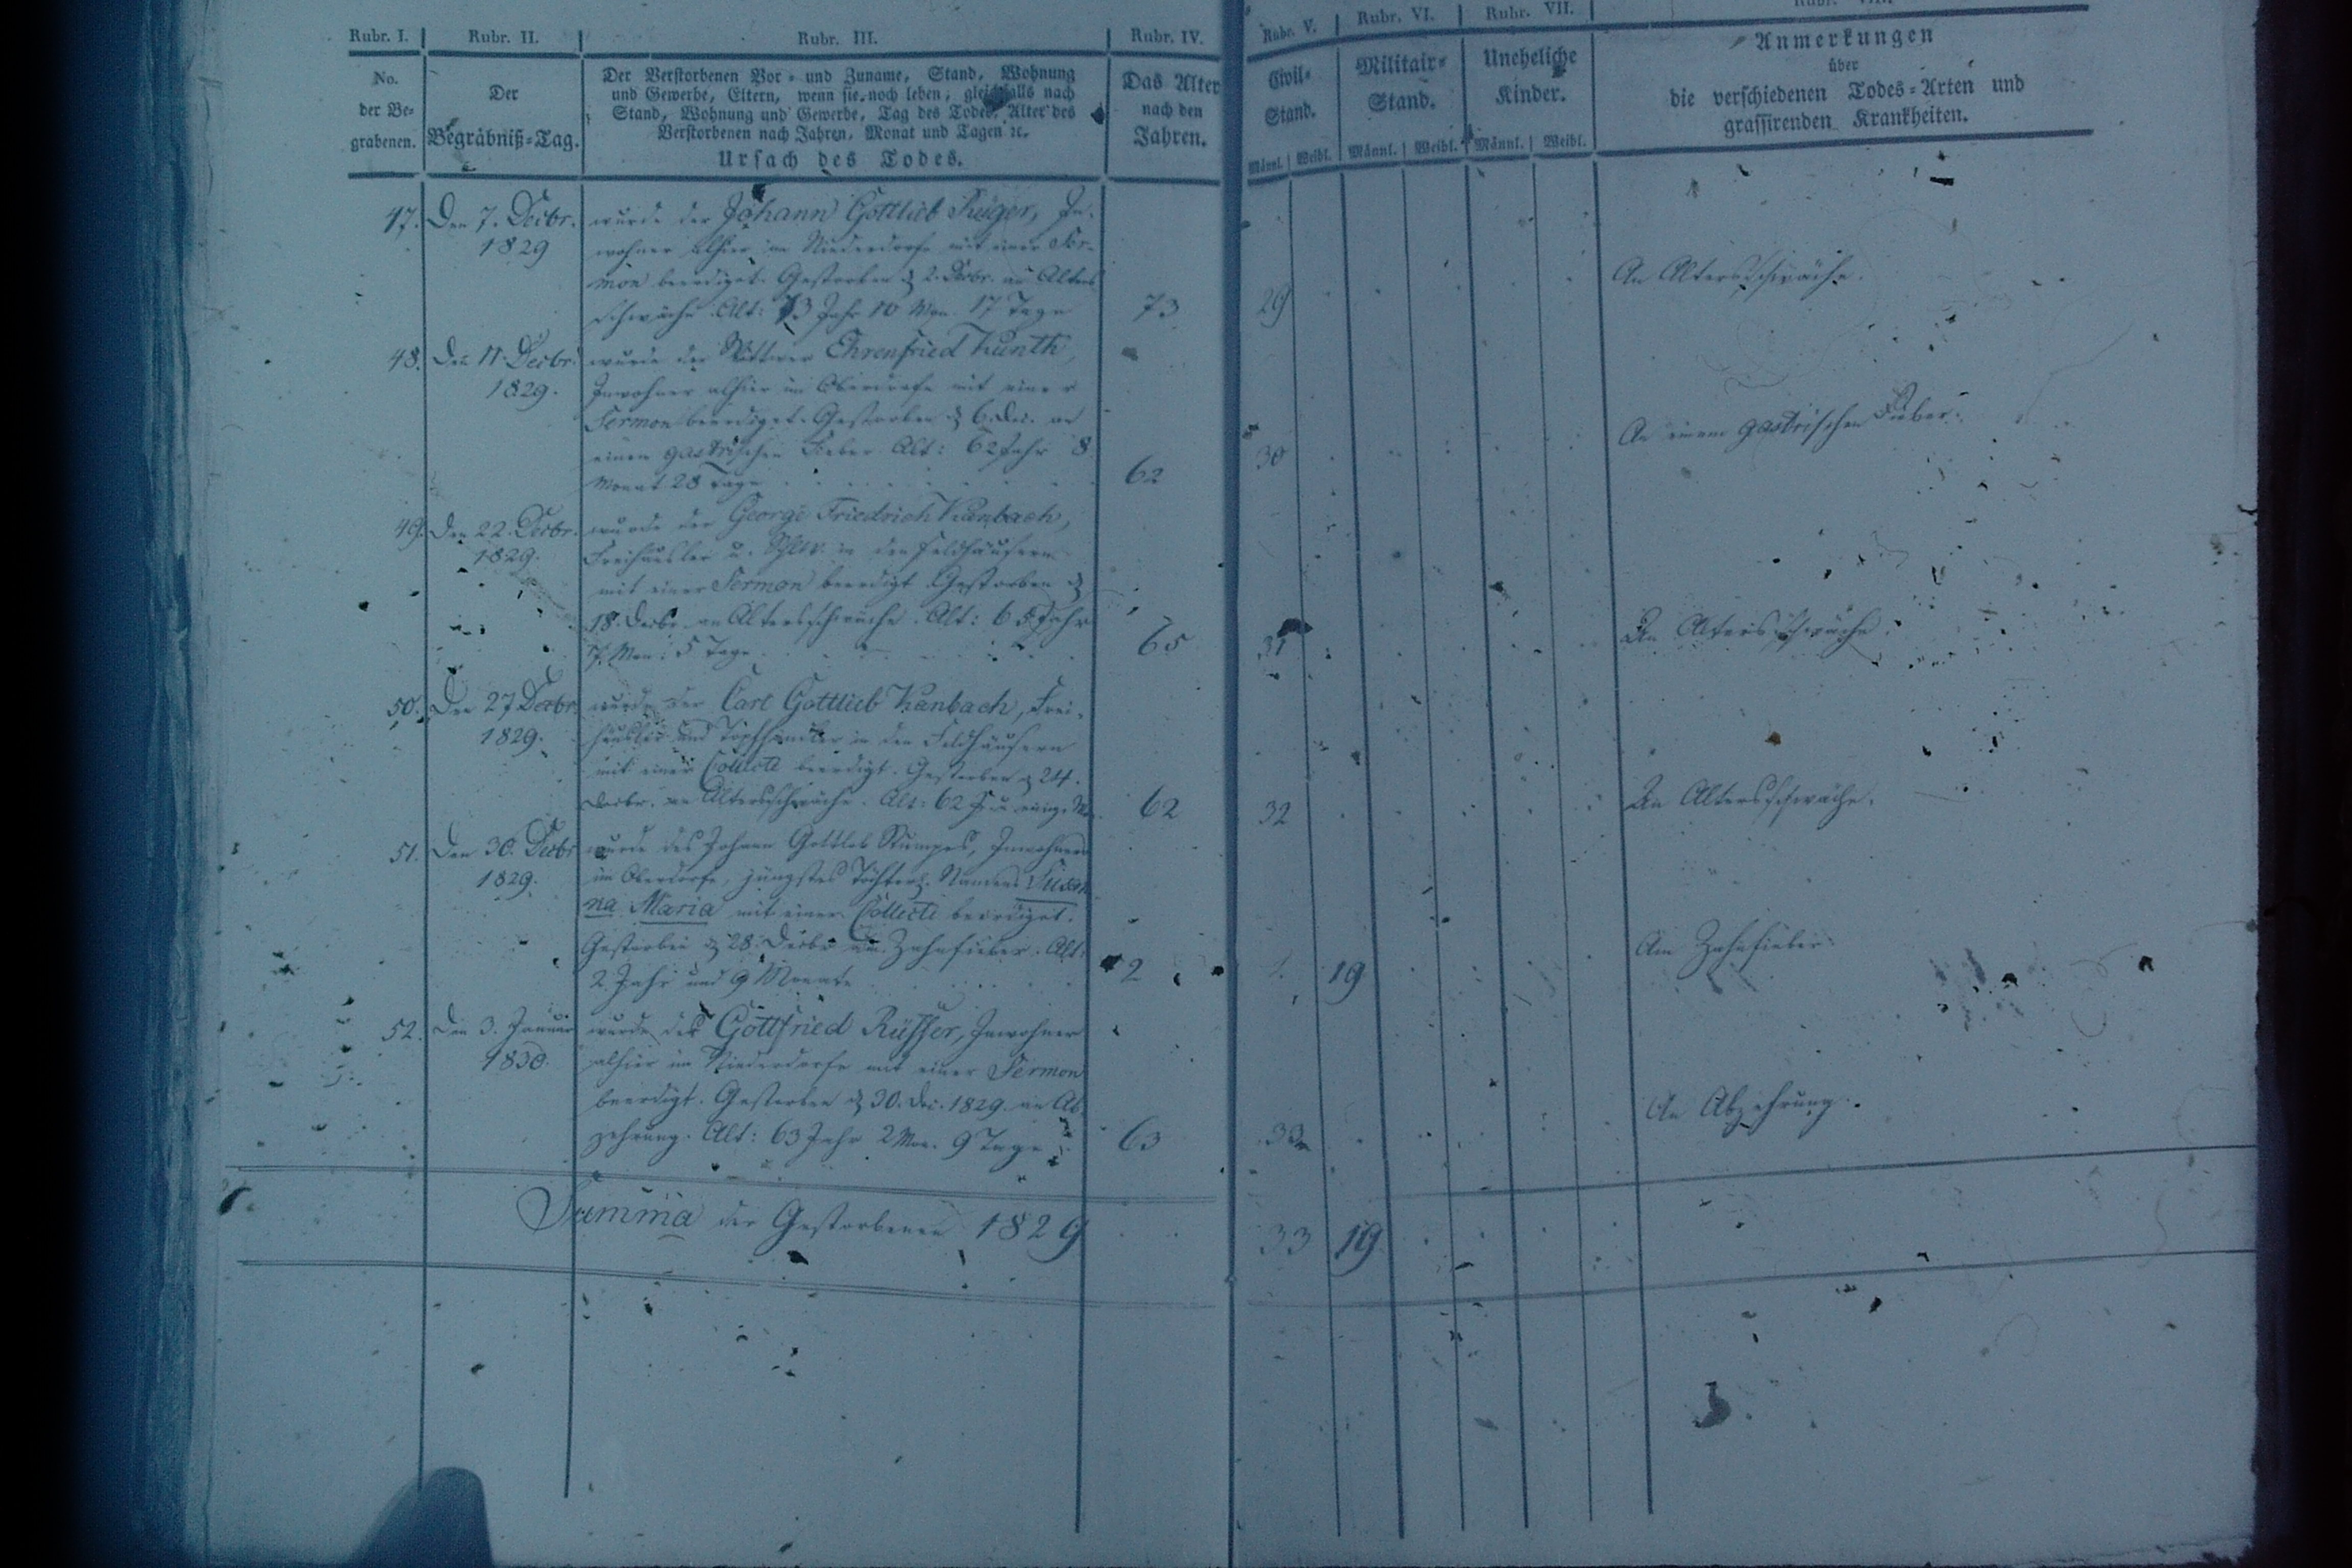 Rubr. I. Rubr. II. Rubr. III. Rubr. IV.
No.
der Be-
grabenen.
Der
Begräbniß-Tag.
Der Verstorbenen Vor- und Zuname, Stand, Wohnung
und Gewerbe, Eltern, wenn sie noch leben, gleichfalls nach
Stand, Wohnung und Gewerbe, Tag des Todes, Alter des
Verstorbenen nach Jahren, Monat und Tagen ꝛc.
Ursach des Todes.
Das Alter
nach den
Jahren.
47. Den 7. Decbr.
1829
wurde der Johann Gottlieb Krüger, In-
wohner alhier im Niederdorfe mit einer Ser-
mon beerdiget. Gestorben d. 2. Decbr. an Alters
schwäche. Alt: 73 Jahr 10 Mon. 17 Tage 73
48. Den 11. Decbr.
1829.
wurde der Wittwer Ehrenfried Kunth,
Inwohner alhier im Oberdorfe mit einer
Sermon beerdiget. Gestorben d. 6. Dec. an
einen gastrischen Fieber Alt: 62 Jahr 8
Monat 28 Tage 62
49. Den 22. Decbr.
1829.
wurde der George Friedrich Kanbach,
Freihäusler u. in den Feldhäusern
mit einer Sermon beerdigt. Gestorben d.
18. Decbr. an Altersschwäche. Alt: 65 Jahr
7. Mon: 5 Tage 65
50. Den 27 Decbr.
1829.
wurde der Carl Gottlieb Kanbach, Frei-
häusler und Topfhändler in den Feldhäusern
mit einer Collecte beerdigt. Gestorben d. 24.
Decbr. an Altersschwäche. Alt: 62 J. u. einig. 62
51. Den 30. Decbr
1829.
wurde des Johann Gottlob Stumpes, Inwohners
im Oberdorfe, jüngstes Töchterl. Namens Susan
na Maria mit einer Collecte beerdiget.
Gestorben d. 28. Decbr am Zahnfieber. Alt:
2 Jahr und 9 Monate 2
52. Den 3. Januar
1830.
wurde der Gottfried Rüffer, Inwohner
alhier im Niederdorfe mit einer Sermon
beerdigt. Gestorben d. 30. Dec. 1829. an Ab-
zehrung. Alt: 63 Jahr 2 Mon. 9 Tage 63
Summa der Gestorbenen 1829
Rubr. V. Rubr. VI. Rubr. VII. Rubr. VIII.
Civil-
Stand.
Militair-
Stand.
Uneheliche
Kinder.
Anmerkungen
über
die verschiedenen Todes-Arten und
grassirenden Krankheiten.
Männl. Weibl. Männl. Weibl. Männl. Weibl.
29 An Altersschwäche.
30 An einem gastrischen Fieber.
31 An Altersschwäche.
32 An Altersschwäche.
19 Am Zahnfieber
33 An Abzehrung.
33 19